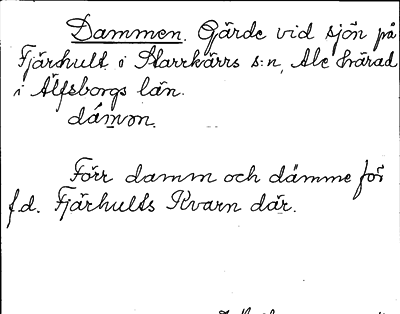 Dammen. Gärde vid sjön på
Fjärhult i Starrkärrs s:n, Ale härad
i Älfsborgs län.
dámən.
Förr damm och dämme för
f.d. Fjärhults Kvarn där.